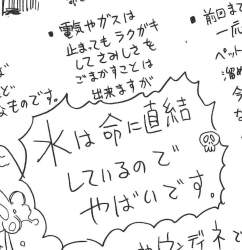 前回まで
一応
ペット
溜め
今
な
・電気やガスは
止まってもラクガキ
してさみしさを
ごまかすことは
出来ますが
ど
なものです。
水は命に直結
しているので
やばいです。
ウンディネで